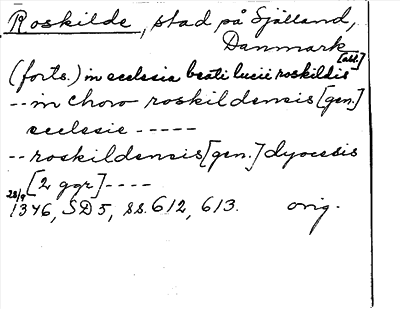 Roskilde, stad på Själland,
Danmark
[abl.]
(forts.) in ecclesia beati lucii roskildis
-- in choro roskildensis [gen.]
ecclesie -----
-- roskildensis [gen.] dyocesis
[2 ggr] ----
28/9
1346, SD5, ss. 612, 613. orig.